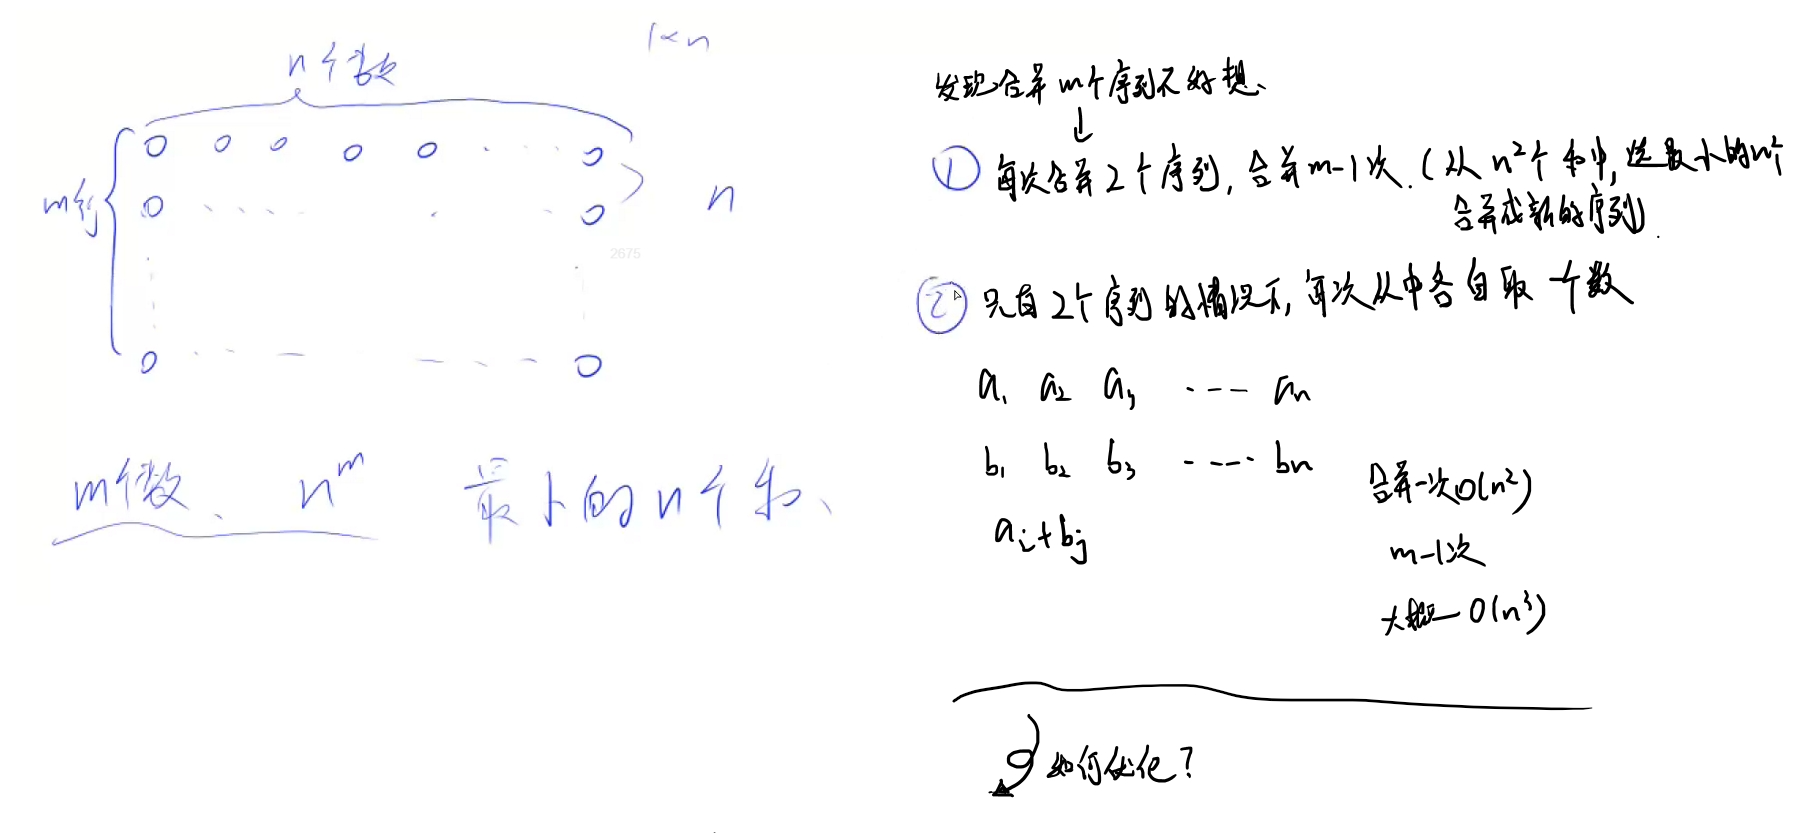 1×n
n个数
m行
n
2675
m个数、 n^m 最小的n个和、
发现合并m个序列不好想、
↓
① 每次合并2个序列, 合并m-1次. (从n²个和中, 选最小的n个
合并成新的序列).
② 只有2个序列的情况下, 每次从中各自取一个数
a₁ a₂ a₃ ---- aₙ
b₁ b₂ b₃ ---- bₙ
aᵢ+bⱼ
合并一次O(n²)
m-1次
大概 O(n³)
如何优化?